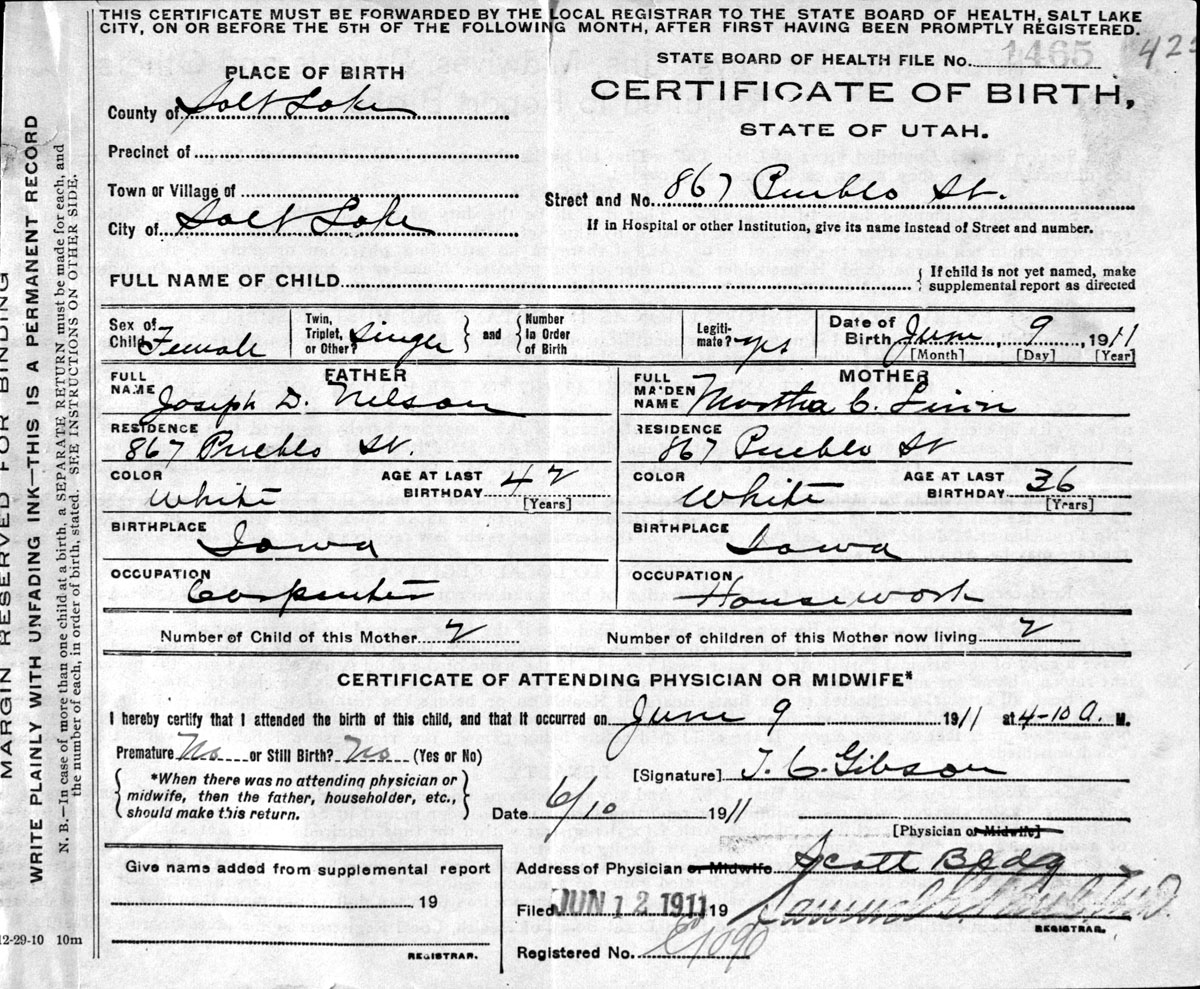 THIS CERTIFICATE MUST BE FORWARDED BY THE LOCAL REGISTRAR TO THE STATE BOARD OF HEALTH, SALT LAKE
CITY, ON OR BEFORE THE 5TH OF THE FOLLOWING MONTH, AFTER FIRST HAVING BEEN PROMPTLY REGISTERED.
STATE BOARD OF HEALTH FILE No. 1465
PLACE OF BIRTH
CERTIFICATE OF BIRTH,
County of Salt Lake
STATE OF UTAH.
Precinct of
Town or Village of
Street and No. 867 Pueblo St.
City of Salt Lake
If in Hospital or other Institution, give its name instead of Street and number.
FULL NAME OF CHILD
If child is not yet named, make
supplemental report as directed
Sex of Child Female
Twin, Triplet, or Other? Singer
and
Number In Order of Birth
Legiti-mate? yes
Date of Birth June 9 1911
[Month] [Day] [Year]
FATHER
FULL NAME Joseph D. Nelson
MOTHER
FULL MAIDEN NAME Martha C. Linn
RESIDENCE 867 Pueblo St.
RESIDENCE 867 Pueblo St
COLOR White
AGE AT LAST BIRTHDAY 42 [Years]
COLOR White
AGE AT LAST BIRTHDAY 36 [Years]
BIRTHPLACE Iowa
BIRTHPLACE Iowa
OCCUPATION Carpenter
OCCUPATION Housework
Number of Child of this Mother 2
Number of children of this Mother now living 2
CERTIFICATE OF ATTENDING PHYSICIAN OR MIDWIFE*
I hereby certify that I attended the birth of this child, and that it occurred on June 9 1911 at 4-10 a. M.
Premature No or Still Birth? No (Yes or No)
*When there was no attending physician or
midwife, then the father, householder, etc.,
should make this return.
[Signature] T. C. Gibson
Date 6/10 1911
[Physician or Midwife]
Give name added from supplemental report
19
REGISTRAR.
Address of Physician or Midwife Scott Bldg
Filed JUN 12 1911 19
REGISTRAR.
Registered No. 1090
12-29-10 10m
MARGIN RESERVED FOR BINDING
WRITE PLAINLY WITH UNFADING INK—THIS IS A PERMANENT RECORD
N. B.—In case of more than one child at a birth, a SEPARATE RETURN must be made for each, and
the number of each, in order of birth, stated. SEE INSTRUCTIONS ON OTHER SIDE.